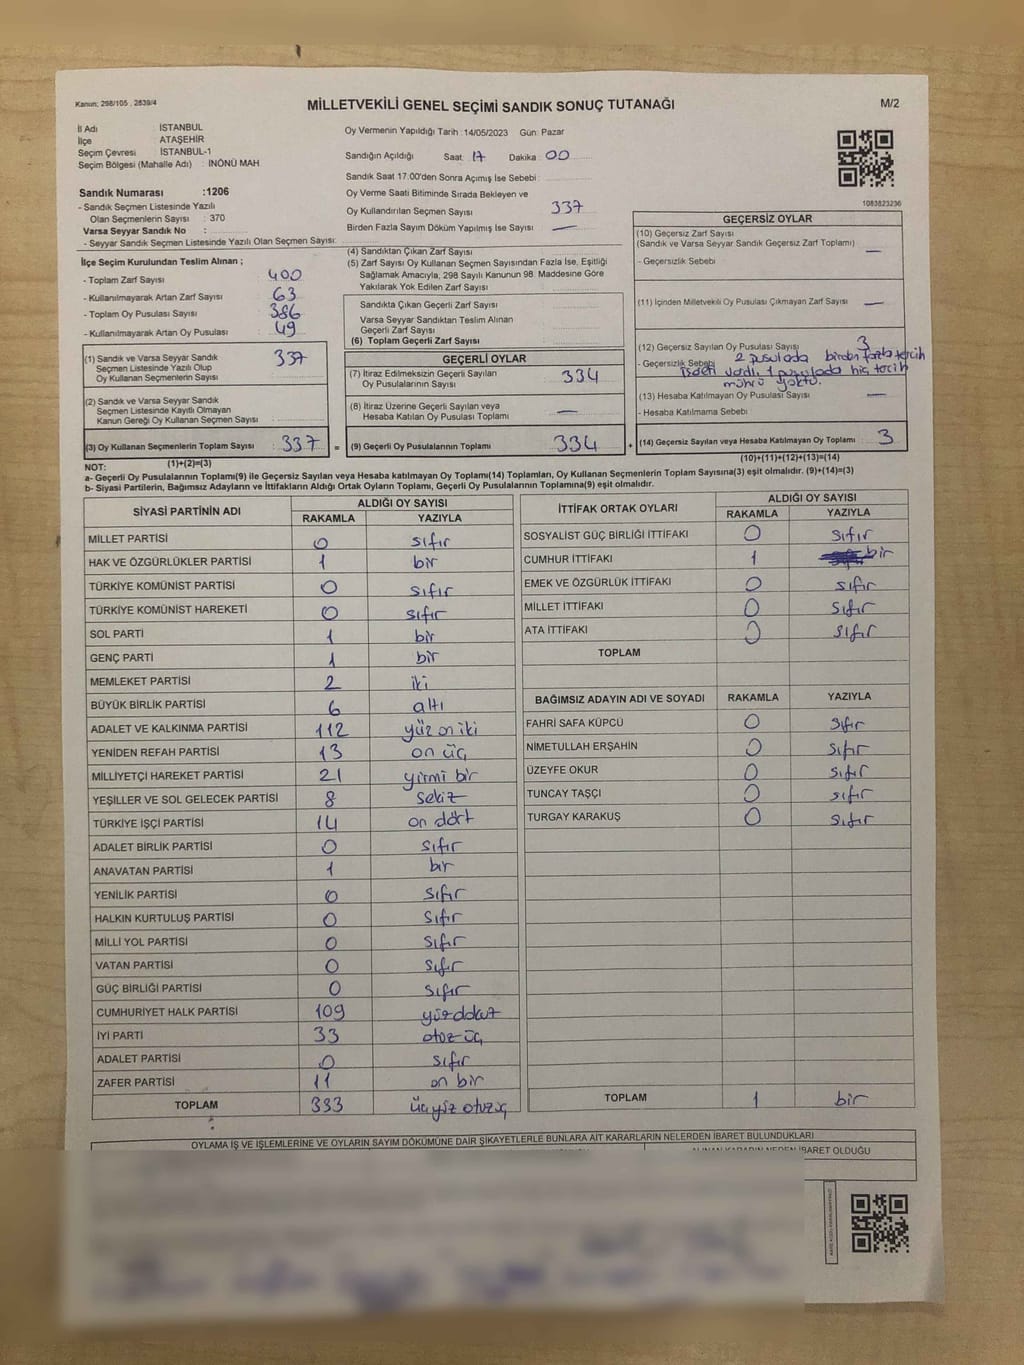 Kanun: 298/105 , 2839/4
MİLLETVEKİLİ GENEL SEÇİMİ SANDIK SONUÇ TUTANAĞI
M/2
İl Adı İSTANBUL
İlçe ATAŞEHİR
Seçim Çevresi İSTANBUL-1
Seçim Bölgesi (Mahalle Adı) : İNÖNÜ MAH
Sandık Numarası :1206
- Sandık Seçmen Listesinde Yazılı
Olan Seçmenlerin Sayısı : 370
Varsa Seyyar Sandık No :
- Seyyar Sandık Seçmen Listesinde Yazılı Olan Seçmen Sayısı:
Oy Vermenin Yapıldığı Tarih :14/05/2023 Gün: Pazar
Sandığın Açıldığı Saat: 17 Dakika : 00
Sandık Saat 17:00'den Sonra Açımış İse Sebebi :
Oy Verme Saati Bitiminde Sırada Bekleyen ve
Oy Kullandırılan Seçmen Sayısı 337
Birden Fazla Sayım Döküm Yapılmış İse Sayısı : —
1083823236
İlçe Seçim Kurulundan Teslim Alınan ;
- Toplam Zarf Sayısı : 400
- Kullanılmayarak Artan Zarf Sayısı : 63
- Toplam Oy Pusulası Sayısı : 386
- Kullanılmayarak Artan Oy Pusulası : 49
(1) Sandık ve Varsa Seyyar Sandık 337
Seçmen Listesinde Yazılı Olup
Oy Kullanan Seçmenlerin Sayısı
(2) Sandık ve Varsa Seyyar Sandık
Seçmen Listesinde Kayıtlı Olmayan
Kanun Gereği Oy Kullanan Seçmen Sayısı
(3) Oy Kullanan Seçmenlerin Toplam Sayısı : 337 =
(1)+(2)=(3)
(4) Sandıktan Çıkan Zarf Sayısı
(5) Zarf Sayısı Oy Kullanan Seçmen Sayısından Fazla İse, Eşitliği
Sağlamak Amacıyla, 298 Sayılı Kanunun 98. Maddesine Göre
Yakılarak Yok Edilen Zarf Sayısı
Sandıkta Çıkan Geçerli Zarf Sayısı
Varsa Seyyar Sandıktan Teslim Alınan
Geçerli Zarf Sayısı
(6) Toplam Geçerli Zarf Sayısı
GEÇERLİ OYLAR
(7) İtiraz Edilmeksizin Geçerli Sayılan
Oy Pusulalarının Sayısı 334
(8) İtiraz Üzerine Geçerli Sayılan veya
Hesaba Katılan Oy Pusulası Toplamı —
(9) Geçerli Oy Pusulalarının Toplamı 334 +
GEÇERSİZ OYLAR
(10) Geçersiz Zarf Sayısı
(Sandık ve Varsa Seyyar Sandık Geçersiz Zarf Toplamı) —
- Geçersizlik Sebebi
(11) İçinden Milletvekili Oy Pusulası Çıkmayan Zarf Sayısı —
(12) Geçersiz Sayılan Oy Pusulası Sayısı 3
- Geçersizlik Sebebi 2 pusulada birden fazla tercih
vardı. 1 pusulada hiç tercih
mührü yoktu.
(13) Hesaba Katılmayan Oy Pusulası Sayısı —
- Hesaba Katılmama Sebebi
(14) Geçersiz Sayılan veya Hesaba Katılmayan Oy Toplamı : 3
(10)+(11)+(12)+(13)=(14)
NOT:
a- Geçerli Oy Pusulalarının Toplamı(9) ile Geçersiz Sayılan veya Hesaba katılmayan Oy Toplamı(14) Toplamları, Oy Kullanan Seçmenlerin Toplam Sayısına(3) eşit olmalıdır. (9)+(14)=(3)
b- Siyasi Partilerin, Bağımsız Adayların ve İttifakların Aldığı Ortak Oyların Toplamı, Geçerli Oy Pusulalarının Toplamına(9) eşit olmalıdır.
SİYASİ PARTİNİN ADI ALDIĞI OY SAYISI
RAKAMLA YAZIYLA
MİLLET PARTİSİ 0 sıfır
HAK VE ÖZGÜRLÜKLER PARTİSİ 1 bir
TÜRKİYE KOMÜNİST PARTİSİ 0 sıfır
TÜRKİYE KOMÜNİST HAREKETİ 0 sıfır
SOL PARTİ 1 bir
GENÇ PARTİ 1 bir
MEMLEKET PARTİSİ 2 iki
BÜYÜK BİRLİK PARTİSİ 6 altı
ADALET VE KALKINMA PARTİSİ 112 yüz on iki
YENİDEN REFAH PARTİSİ 13 on üç
MİLLİYETÇİ HAREKET PARTİSİ 21 yirmi bir
YEŞİLLER VE SOL GELECEK PARTİSİ 8 sekiz
TÜRKİYE İŞÇİ PARTİSİ 14 on dört
ADALET BİRLİK PARTİSİ 0 sıfır
ANAVATAN PARTİSİ 1 bir
YENİLİK PARTİSİ 0 sıfır
HALKIN KURTULUŞ PARTİSİ 0 sıfır
MİLLİ YOL PARTİSİ 0 sıfır
VATAN PARTİSİ 0 sıfır
GÜÇ BİRLİĞİ PARTİSİ 0 sıfır
CUMHURİYET HALK PARTİSİ 109 yüz dokuz
İYİ PARTİ 33 otuz üç
ADALET PARTİSİ 0 sıfır
ZAFER PARTİSİ 11 on bir
TOPLAM 333 üçyüz otuzüç
İTTİFAK ORTAK OYLARI ALDIĞI OY SAYISI
RAKAMLA YAZIYLA
SOSYALİST GÜÇ BİRLİĞİ İTTİFAKI 0 sıfır
CUMHUR İTTİFAKI 1 bir
EMEK VE ÖZGÜRLÜK İTTİFAKI 0 sıfır
MİLLET İTTİFAKI 0 sıfır
ATA İTTİFAKI 0 sıfır
TOPLAM
BAĞIMSIZ ADAYIN ADI VE SOYADI RAKAMLA YAZIYLA
FAHRİ SAFA KÜPCÜ 0 sıfır
NİMETULLAH ERŞAHİN 0 sıfır
ÜZEYFE OKUR 0 sıfır
TUNCAY TAŞÇI 0 sıfır
TURGAY KARAKUŞ 0 sıfır
TOPLAM 1 bir
OYLAMA İŞ VE İŞLEMLERİNE VE OYLARIN SAYIM DÖKÜMÜNE DAİR ŞİKAYETLERLE BUNLARA AİT KARARLARIN NELERDEN İBARET BULUNDUKLARI
ALINAN KARARIN NEDEN İBARET OLDUĞU